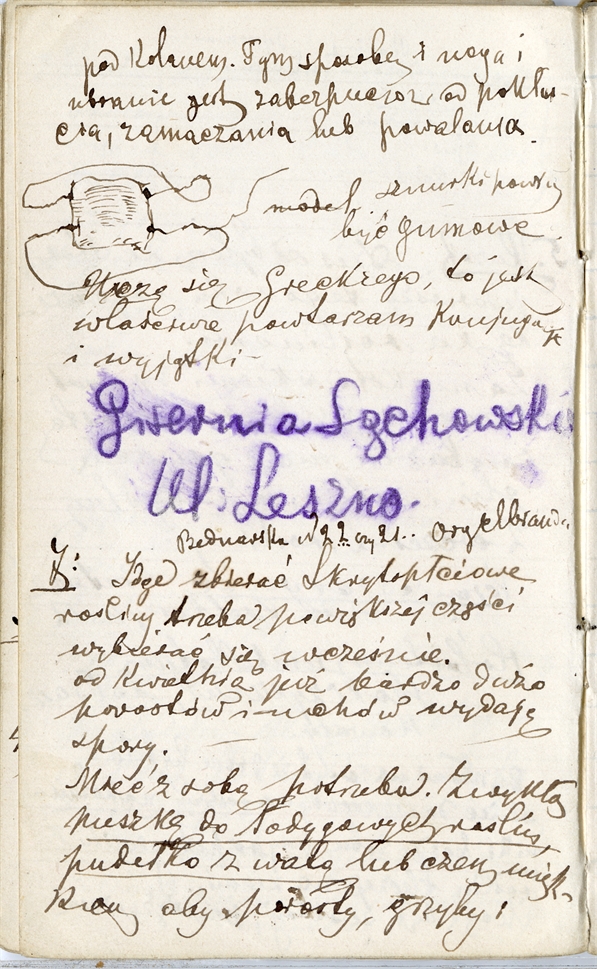 pod Kolanem. Tym sposobem i noga i
ubranie jest zabezpieczone od pokłu-
cia, zamaczania lub powalania.
model sznurki powinny
być gumowe.
Uczę się Greckiego, to jest
właściwie powtarzam Konjugacje
i wyjątki –
Gisernia Lychowski
Ul. Leszno.
Bednarska N 22 czy 21.. Orgelbranda
Z: Idąc zbierać Skrytopłciowe
rośliny trzeba powiększej części
wybierać się wcześnie.
od Kwietnia już bardzo dużo
porostów i mchów wydaje
spory. –
Mieć z sobą potrzeba. Zwykłą
puszkę do łodygowych roślin,
pudełko z watą lub czem mięk-
kiem aby porosty, grzyby i